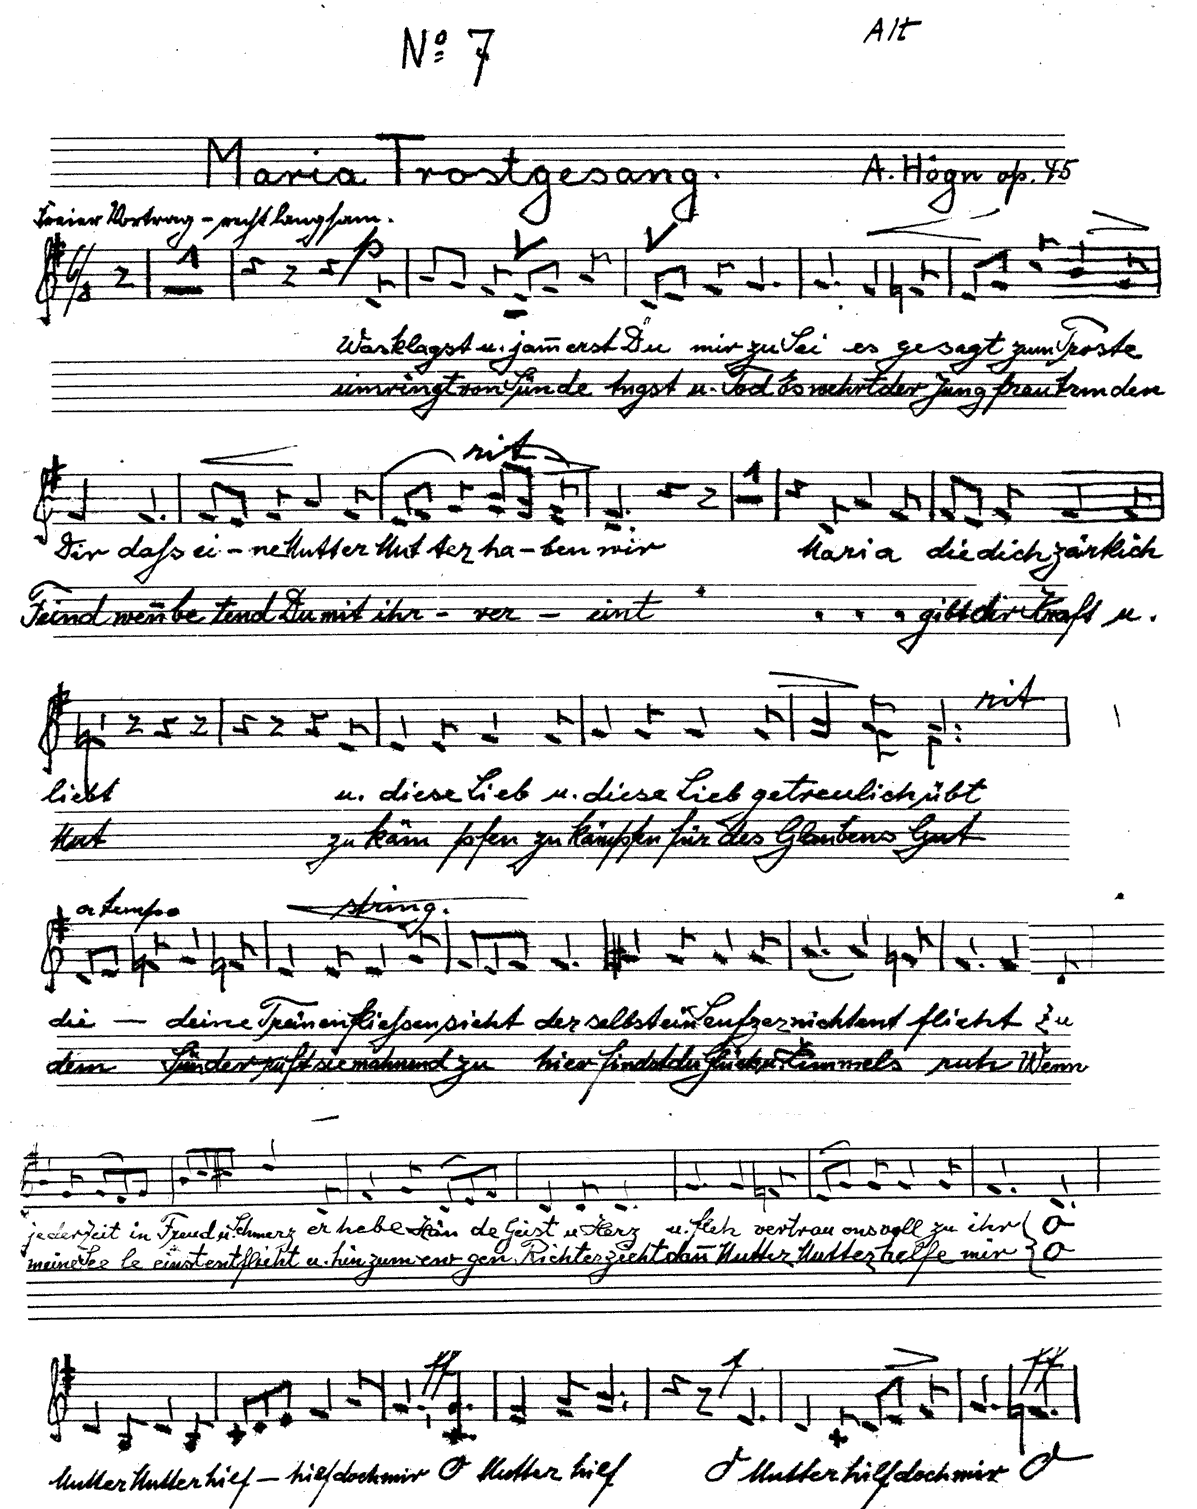 No 7
Alt
Maria Trostgesang.
A. Högn op. 45
Freier Vortrag - recht langsam.
p
Was klagst u. jam̄erst Du mir zu Sei es gesagt zum Troste
umringt von Sünde Angst u. Tod Es wehrt der Jungfrau den
rit
1
Dir dass ei - ne Mutter Mut ter ha - ben wir Maria die dich zärtlich
Feind wen̄ be tend Du mit ihr - ver - eint . . . gibt dir Kraft u.
rit
liebt u. diese Lieb u. diese Lieb getreulich übt
Mut zu käm pfen zu kämpfen für des Glaubens Gut
a tempo
string.
die - deine Tränen fliessen sieht der selbst ein Seufzer nicht ent flieht Zu
dem Sünder ruft sie mahnend zu hier findst du Glück u. Himmels ruh Wenn
jeder Zeit in Freud u. Schmerz er hebe Hän de Geist u Herz u. fleh vertrau onsvoll zu ihr O
meine See le einst entflieht u. hin zum ew gen Richter zieht dan̄ Mutter Mutter helfe mir O
ff
f
ff
Mutter Mutter hilf - hilf doch mir O Mutter hilf O Mutter hilf doch mir O